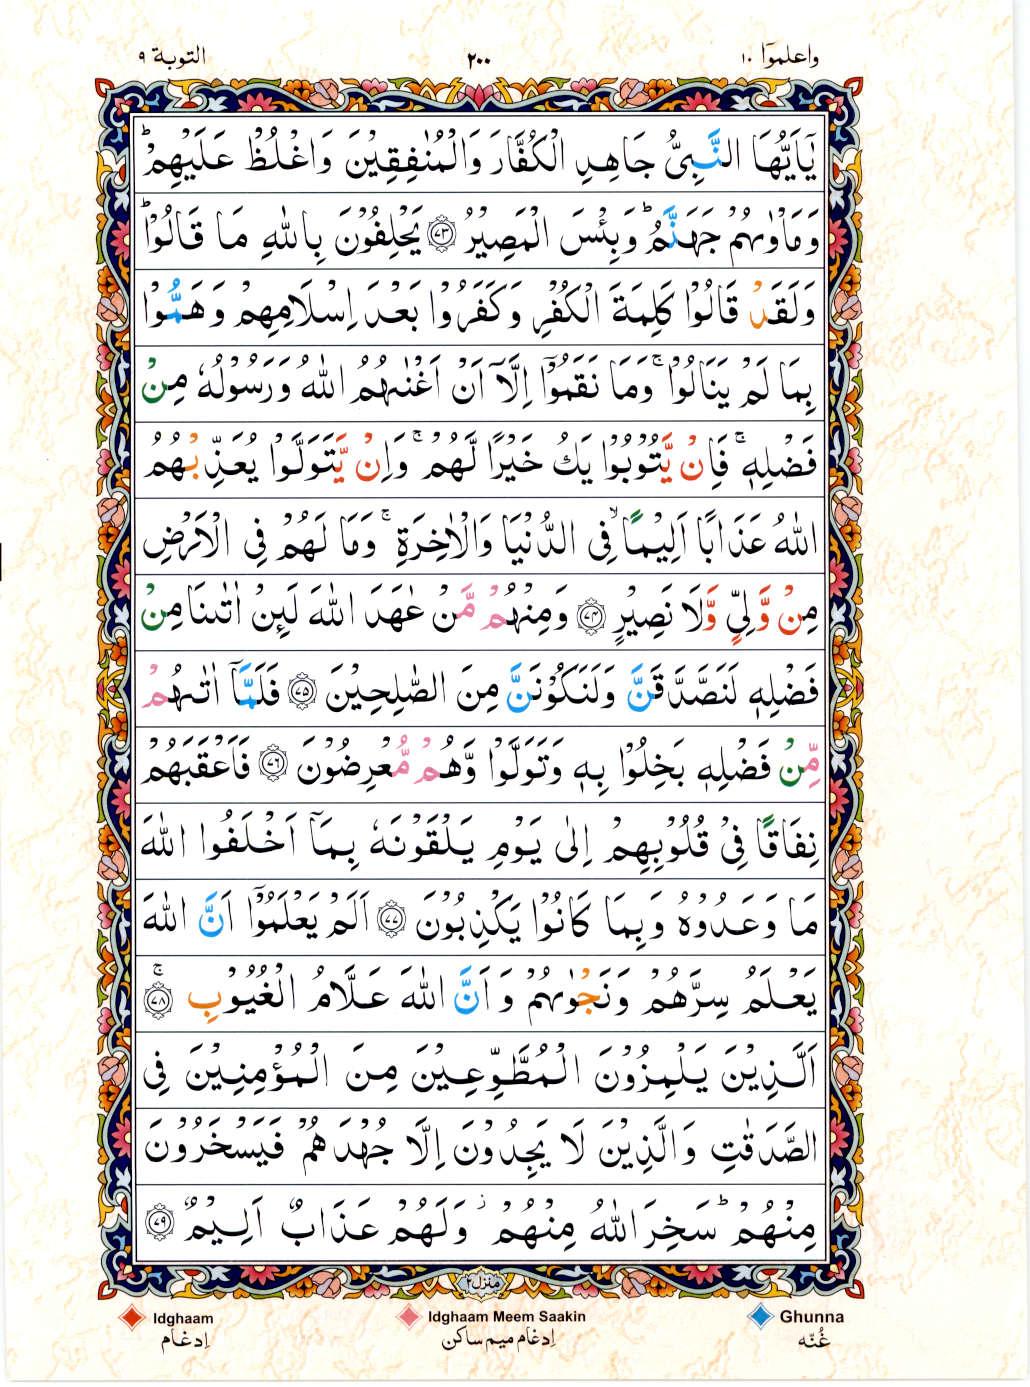 واعلموٓا ١٠
٢٠٠
التوبة ٩
يٰٓاَيُّهَا النَّبِيُّ جَاهِدِ الْكُفَّارَ وَالْمُنٰفِقِيْنَ وَاغْلُظْ عَلَيْهِمْ ؕ
وَمَاْوٰىهُمْ جَهَنَّمُ ؕ وَبِئْسَ الْمَصِيْرُ ﴿٧٣﴾ يَحْلِفُوْنَ بِاللّٰهِ مَا قَالُوْا ؕ
وَلَقَدْ قَالُوْا كَلِمَةَ الْكُفْرِ وَكَفَرُوْا بَعْدَ اِسْلَامِهِمْ وَهَمُّوْا
بِمَا لَمْ يَنَالُوْا ۚ وَمَا نَقَمُوْٓا اِلَّآ اَنْ اَغْنٰىهُمُ اللّٰهُ وَرَسُوْلُهٗ مِنْ
فَضْلِهٖ ۚ فَاِنْ يَّتُوْبُوْا يَكُ خَيْرًا لَّهُمْ ۚ وَاِنْ يَّتَوَلَّوْا يُعَذِّبْهُمُ
اللّٰهُ عَذَابًا اَلِيْمًا ۙ فِى الدُّنْيَا وَالْاٰخِرَةِ ۚ وَمَا لَهُمْ فِى الْاَرْضِ
مِنْ وَّلِيٍّ وَّلَا نَصِيْرٍ ﴿٧٤﴾ وَمِنْهُمْ مَّنْ عٰهَدَ اللّٰهَ لَئِنْ اٰتٰىنَا مِنْ
فَضْلِهٖ لَنَصَّدَّقَنَّ وَلَنَكُوْنَنَّ مِنَ الصّٰلِحِيْنَ ﴿٧٥﴾ فَلَمَّآ اٰتٰىهُمْ
مِّنْ فَضْلِهٖ بَخِلُوْا بِهٖ وَتَوَلَّوْا وَّهُمْ مُّعْرِضُوْنَ ﴿٧٦﴾ فَاَعْقَبَهُمْ
نِفَاقًا فِيْ قُلُوْبِهِمْ اِلٰى يَوْمِ يَلْقَوْنَهٗ بِمَآ اَخْلَفُوا اللّٰهَ
مَا وَعَدُوْهُ وَبِمَا كَانُوْا يَكْذِبُوْنَ ﴿٧٧﴾ اَلَمْ يَعْلَمُوْٓا اَنَّ اللّٰهَ
يَعْلَمُ سِرَّهُمْ وَنَجْوٰىهُمْ وَاَنَّ اللّٰهَ عَلَّامُ الْغُيُوْبِ ۚ ﴿٧٨﴾
اَلَّذِيْنَ يَلْمِزُوْنَ الْمُطَّوِّعِيْنَ مِنَ الْمُؤْمِنِيْنَ فِى
الصَّدَقٰتِ وَالَّذِيْنَ لَا يَجِدُوْنَ اِلَّا جُهْدَهُمْ فَيَسْخَرُوْنَ
مِنْهُمْ ؕ سَخِرَ اللّٰهُ مِنْهُمْ ۫ وَلَهُمْ عَذَابٌ اَلِيْمٌ ﴿٧٩﴾
منزل ٢
Idghaam
Idghaam Meem Saakin
Ghunna
اِدغام
اِدغام میم ساکن
غُنّه